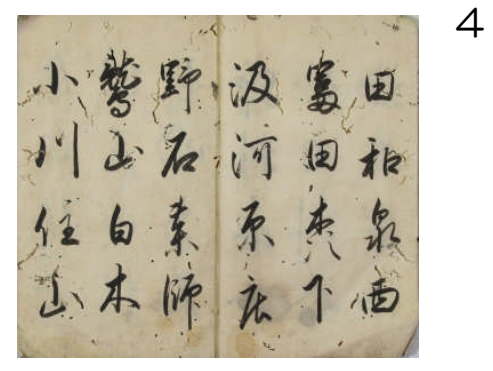 4
田和泉西
富田枩下
汲河原庄
野石薬師
鷲山白木
小川住山